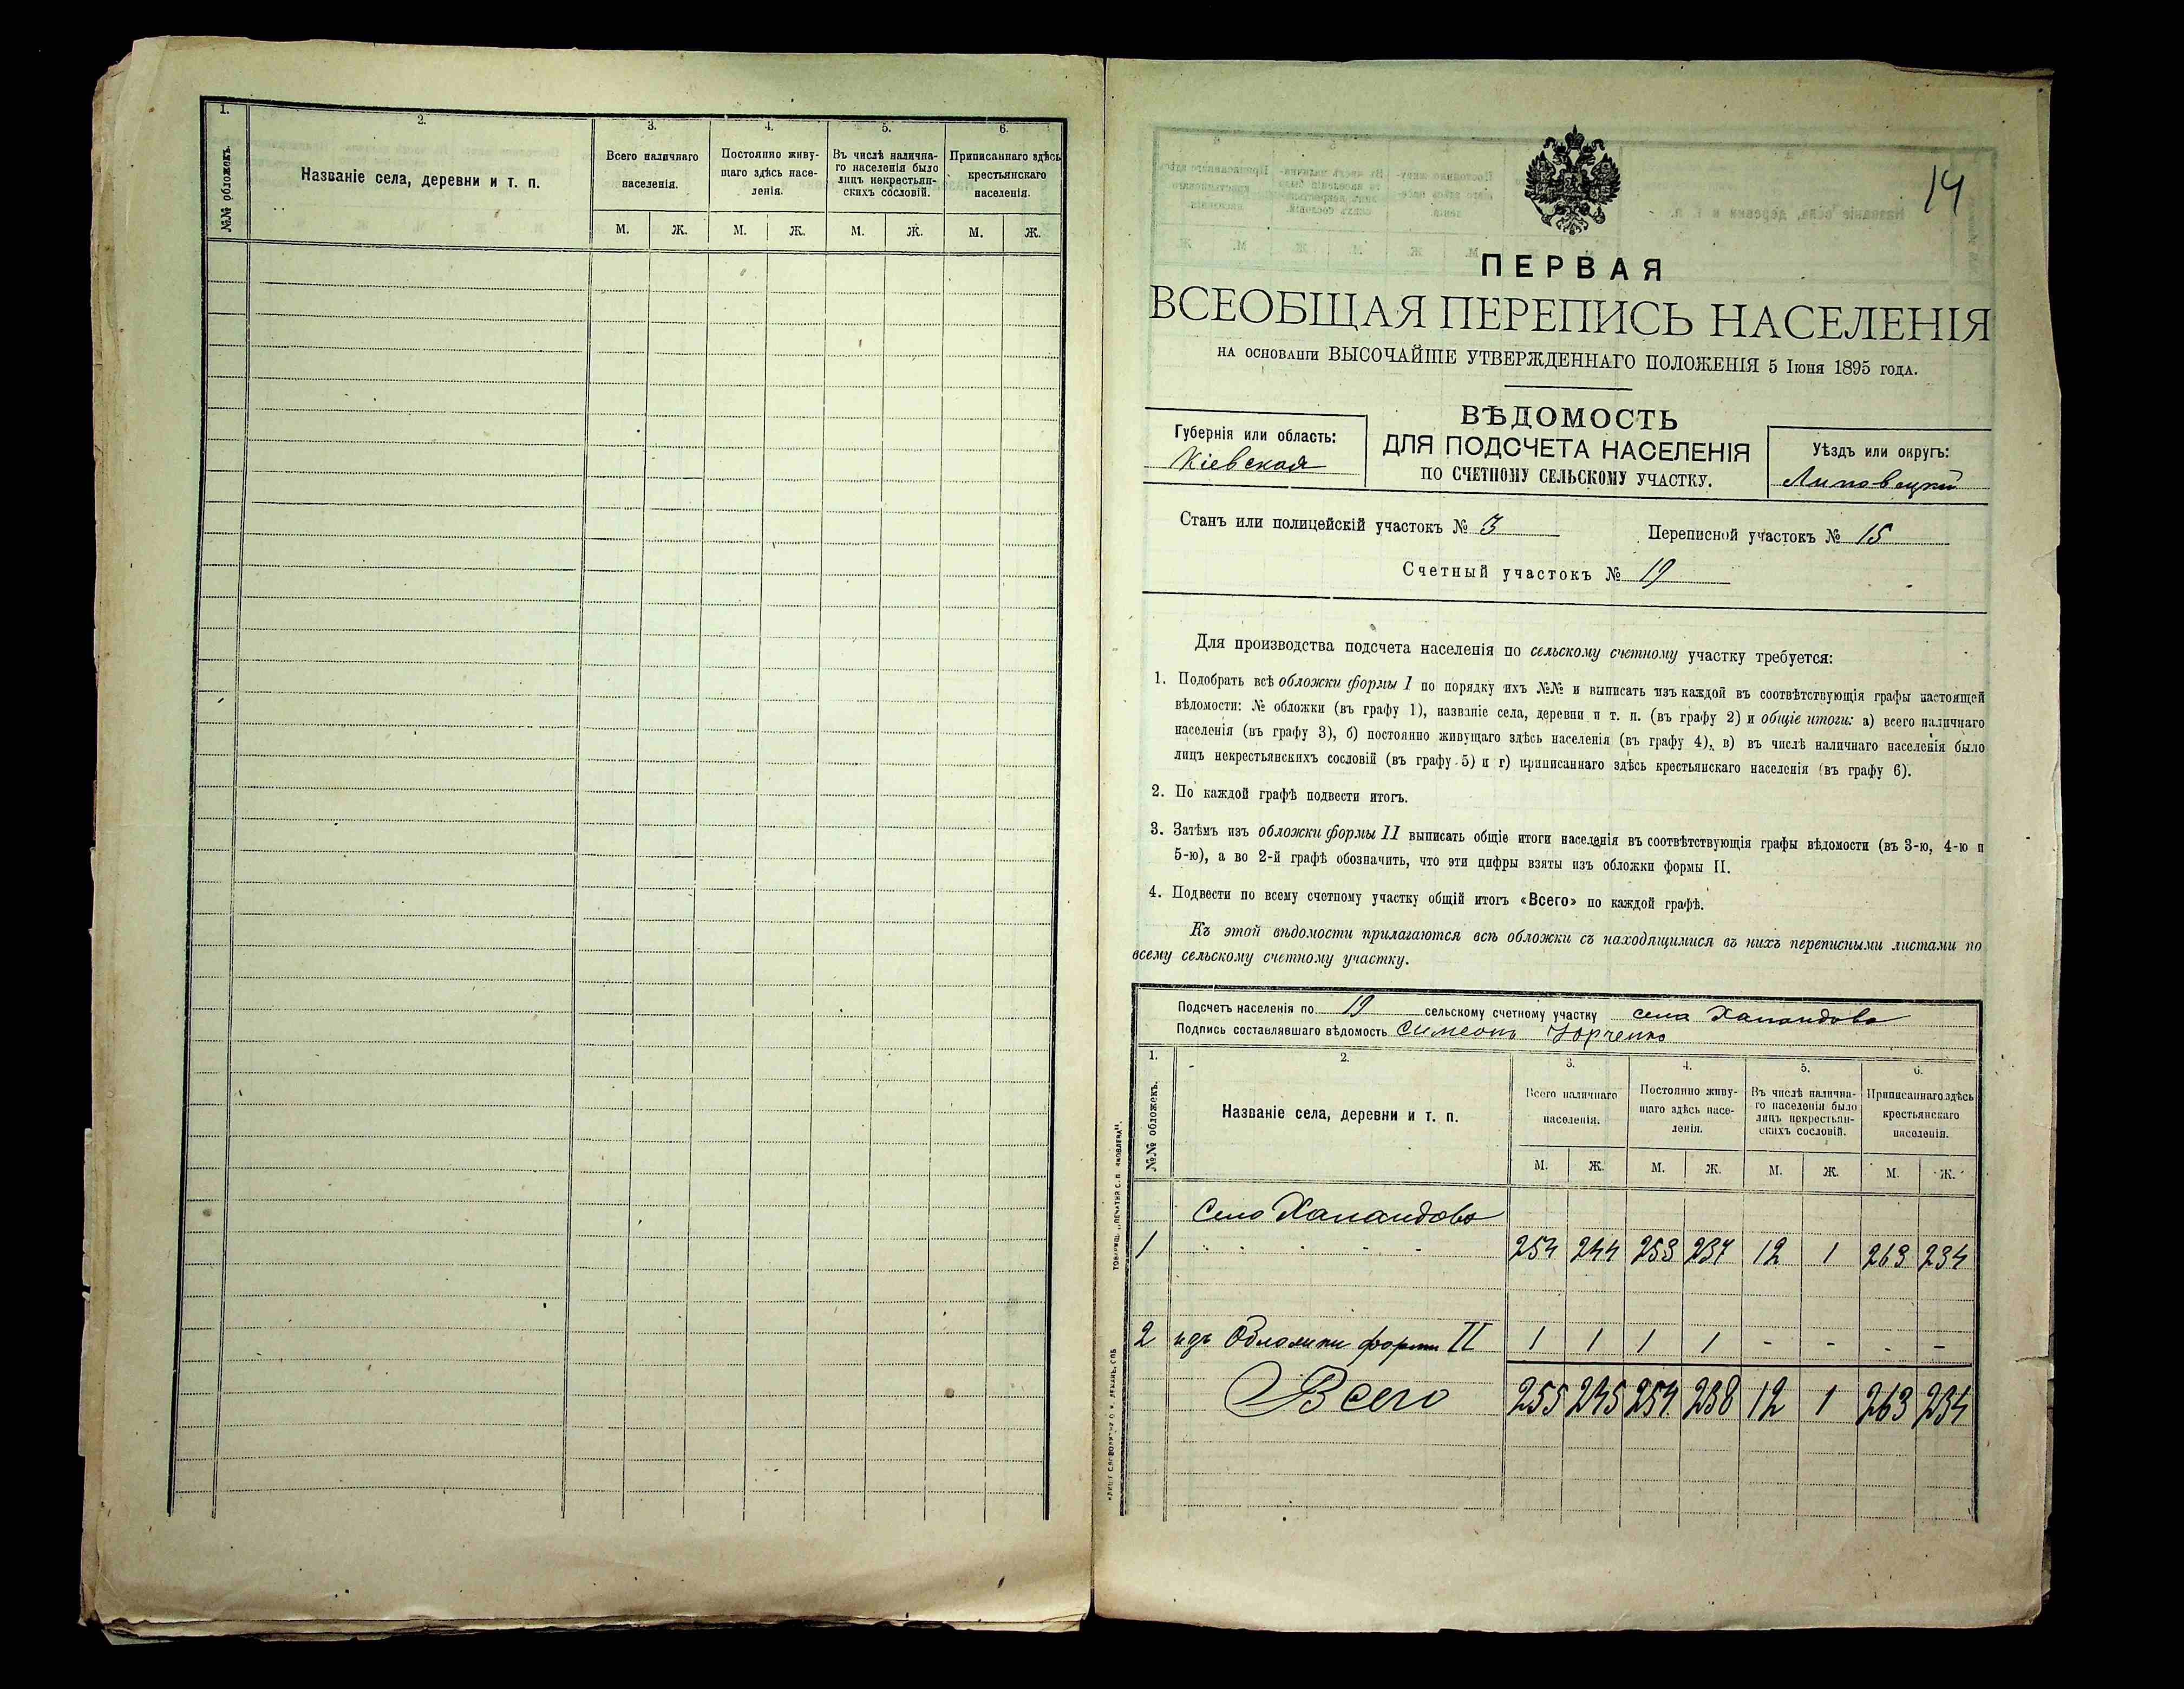 1.
2.
3.
4.
5.
6.
№№ обложекъ.
Названіе села, деревни и т. п.
Всего наличнаго
населенія.
Постоянно живу-
щаго здѣсь насе-
ленія.
Въ числѣ налична-
го населенія было
лицъ некрестьян-
скихъ сословій.
Приписаннаго здѣсь
крестьянскаго
населенія.
М. Ж. М. Ж. М. Ж. М. Ж.
14
ПЕРВАЯ
ВСЕОБЩАЯ ПЕРЕПИСЬ НАСЕЛЕНІЯ
НА ОСНОВАНІИ ВЫСОЧАЙШЕ УТВЕРЖДЕННАГО ПОЛОЖЕНІЯ 5 Іюня 1895 года.
ВѢДОМОСТЬ
ДЛЯ ПОДСЧЕТА НАСЕЛЕНІЯ
ПО СЧЕТНОМУ СЕЛЬСКОМУ УЧАСТКУ.
Губернія или область:
Кіевская
Уѣздъ или округъ:
Липовецкій
Станъ или полицейскій участокъ № 3
Переписной участокъ № 15
Счетный участокъ № 19
Для производства подсчета населенія по сельскому счетному участку требуется:
1. Подобрать всѣ обложки формы I по порядку ихъ №№ и выписать изъ каждой въ соотвѣтствующія графы настоящей
вѣдомости: № обложки (въ графу 1), названіе села, деревни и т. п. (въ графу 2) и общіе итоги: а) всего наличнаго
населенія (въ графу 3), б) постоянно живущаго здѣсь населенія (въ графу 4), в) въ числѣ наличнаго населенія было
лицъ некрестьянскихъ сословій (въ графу 5) и г) приписаннаго здѣсь крестьянскаго населенія (въ графу 6).
2. По каждой графѣ подвести итогъ.
3. Затѣмъ изъ обложки формы II выписать общіе итоги населенія въ соотвѣтствующія графы вѣдомости (въ 3-ю, 4-ю и
5-ю), а во 2-й графѣ обозначить, что эти цифры взяты изъ обложки формы II.
4. Подвести по всему счетному участку общій итогъ «Всего» по каждой графѣ.
Къ этой вѣдомости прилагаются всѣ обложки съ находящимися въ нихъ переписными листами по
всему сельскому счетному участку.
Подсчетъ населенія по 19 сельскому счетному участку села
Подпись составлявшаго вѣдомость Симеонъ Юрченко
1.
2.
3.
4.
5.
6.
№№ обложекъ.
Названіе села, деревни и т. п.
Всего наличнаго
населенія.
Постоянно живу-
щаго здѣсь насе-
ленія.
Въ числѣ налична-
го населенія было
лицъ некрестьян-
скихъ сословій.
Приписаннаго здѣсь
крестьянскаго
населенія.
М. Ж. М. Ж. М. Ж. М. Ж.
Село
1 " " " " " 254 244 253 237 12 1 263 234
2 изъ Обложки формы II 1 1 1 1 - - - -
Всего 255 245 254 238 12 1 263 234